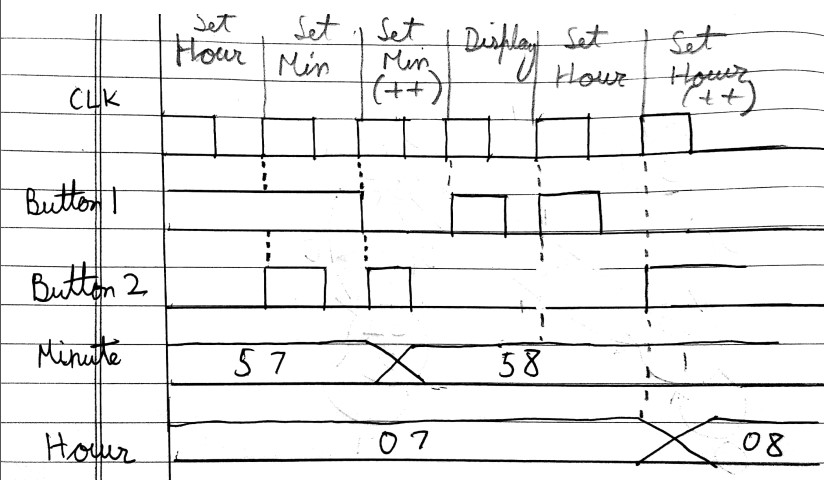 Set Hour
Set Min
Set Min (++)
Display
Set Hour
Set Hour (++)
CLK
Button 1
Button 2
Minute 57 58
Hour 07 08